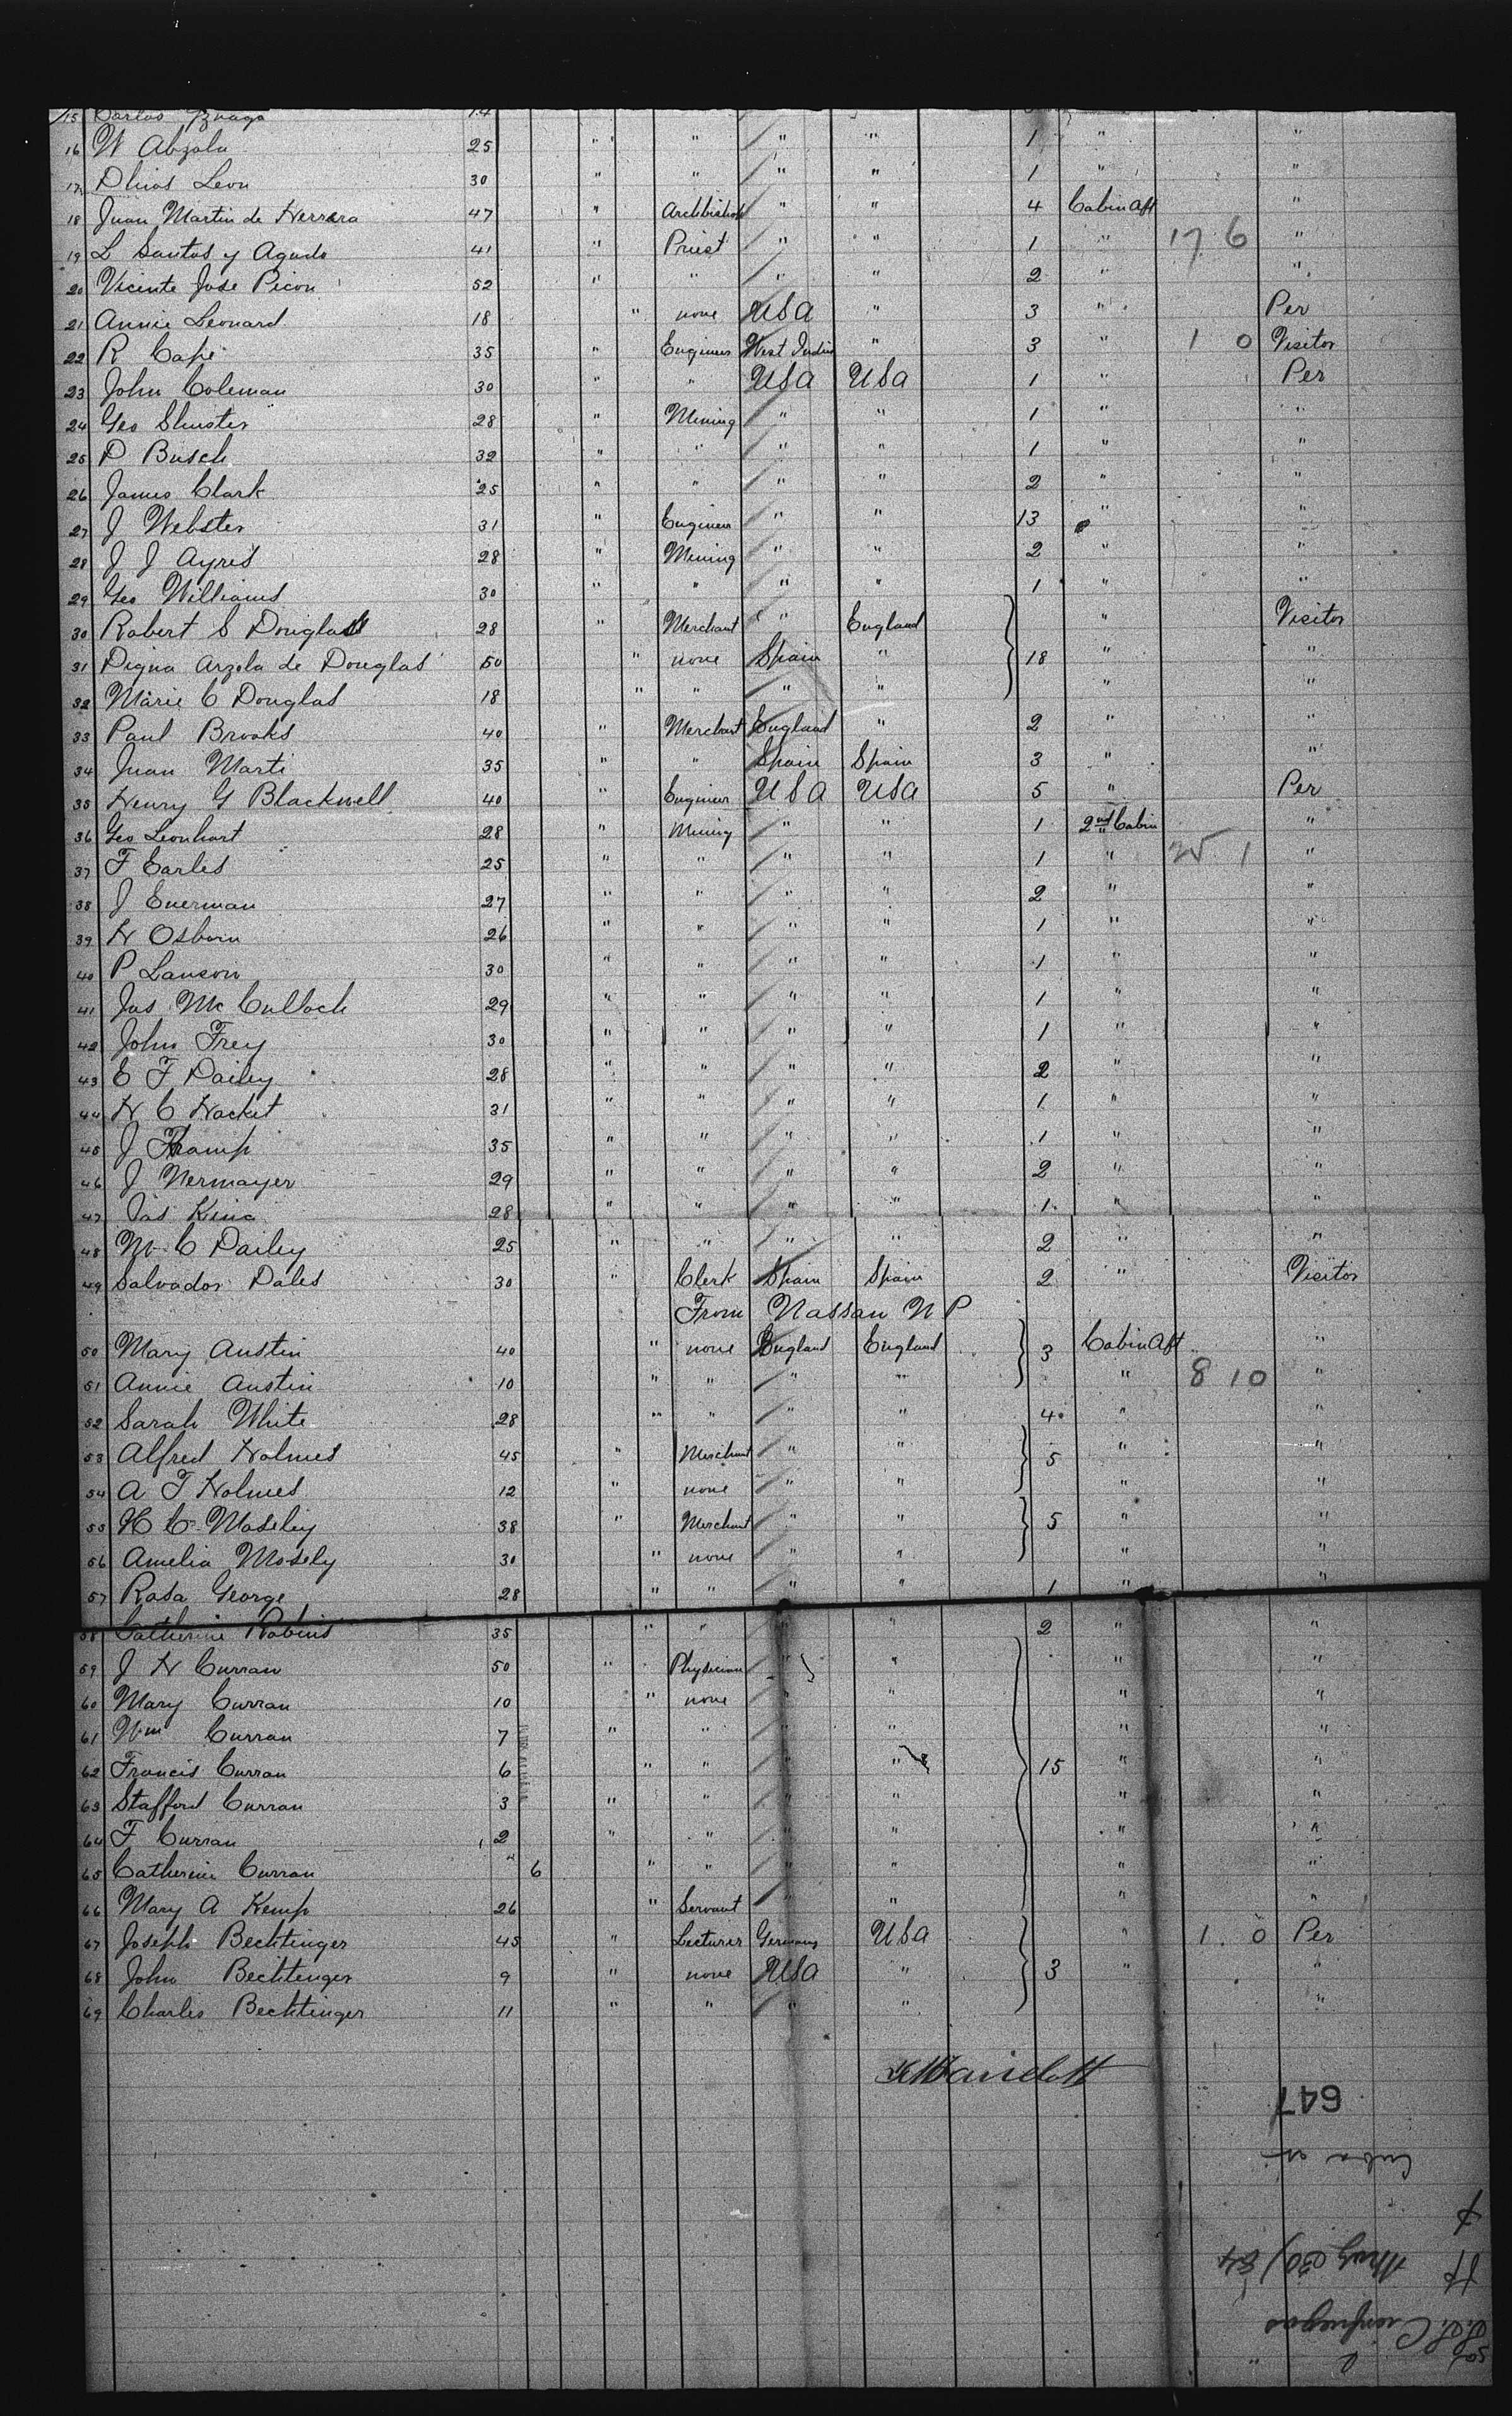 15 Carlos 14
16 W Abzola 25 " " " " 1 " "
17 Leon 30 " " " " 1 " "
18 Juan Martin de Herrera 47 " Archbishop " " 4 Cabin Aft "
19 L Santos y Agudo 41 " Priest " " 1 " 17 6 "
20 Vicente Jose Picon 52 " " " " 2 " "
21 Annie Leonard 18 " none USA " 3 " Per
22 R Cape 35 " Engineer West Indies " 3 " 1 0 Visitor
23 John Coleman 30 " " USA USA 1 " Per
24 Geo Shuster 28 " Mining " " 1 " "
25 D Busch 32 " " " " 1 " "
26 James Clark 25 " " " " 2 " "
27 J Webster 31 " Engineer " " 13 " "
28 J J Ayres 28 " Mining " " 2 " "
29 Geo Williams 30 " " " " 1 " "
30 Robert S Douglas 28 " Merchant " England " Visitor
31 Digna Arzola de Douglas 50 " none Spain " 18 " "
32 Marie C Douglas 18 " " " " " "
33 Paul Brooks 40 " Merchant England " 2 " "
34 Juan Marti 35 " " Spain Spain 3 " "
35 Henry G Blackwell 40 " Engineer USA USA 5 " Per
36 Geo Leonhart 28 " Mining " " 1 2nd Cabin "
37 F Earles 25 " " " " 1 " 25 1 "
38 J Enerman 27 " " " " 2 " "
39 H Osborn 26 " " " " 1 " "
40 P Lawson 30 " " " " 1 " "
41 Jas McCulloch 29 " " " " 1 " "
42 John Frey 30 " " " " 1 " "
43 E F Dailey 28 " " " " 2 " "
44 H C Hacket 31 " " " " 1 " "
45 J 35 " " " " 1 " "
46 J Nermayer 29 " " " " 2 " "
47 Jas King 28 " " " " 1 " "
48 M C Dailey 25 " " " " 2 " "
49 Salvador Dales 30 " Clerk Spain Spain 2 " Visitor
From Nassau N P
50 Mary Austin 40 " none England England 3 Cabin Aft "
51 Annie Austin 10 " " " " " 8 10 "
52 Sarah White 28 " " " " 4 " "
53 Alfred Holmes 45 " Merchant " " 5 " "
54 A T Holmes 12 " none " " " "
55 H C Moseley 38 " Merchant " " 5 " "
56 Amelia Mosely 30 " none " " " "
57 Rosa George 28 " " " " 1 " "
58 Catherine Robins 35 " " " " 2 " "
59 J H Curran 50 " Physician " " " "
60 Mary Curran 10 " none " " " "
61 Wm Curran 7 " " " " " "
62 Francis Curran 6 " " " " 15 " "
63 Stafford Curran 3 " " " " " "
64 F Curran 2 " " " " " "
65 Catherine Curran " 6 " " " " " "
66 Mary A Kemp 26 " Servant " " " "
67 Joseph Bechtinger 45 " Lecturer Germany USA " 1 0 Per
68 John Bechtinger 9 " none USA " 3 " "
69 Charles Bechtinger 11 " " " " "
647
S.S. Cienfuegos